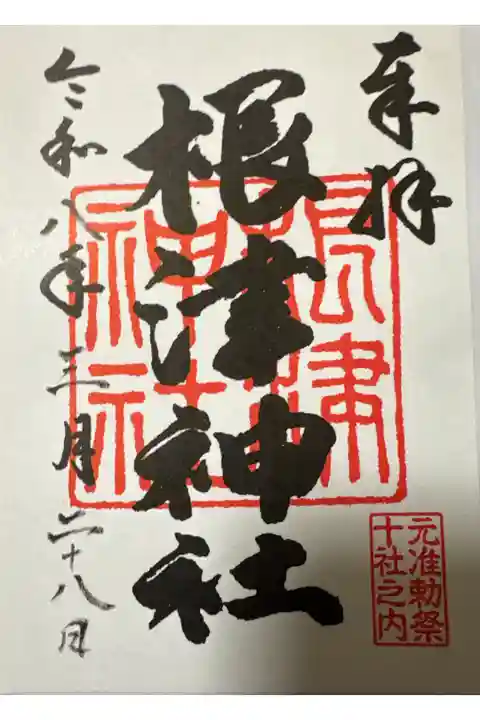 奉拝
根津神社
根津神社
元准勅祭
十社之内
令和八年三月二十八日